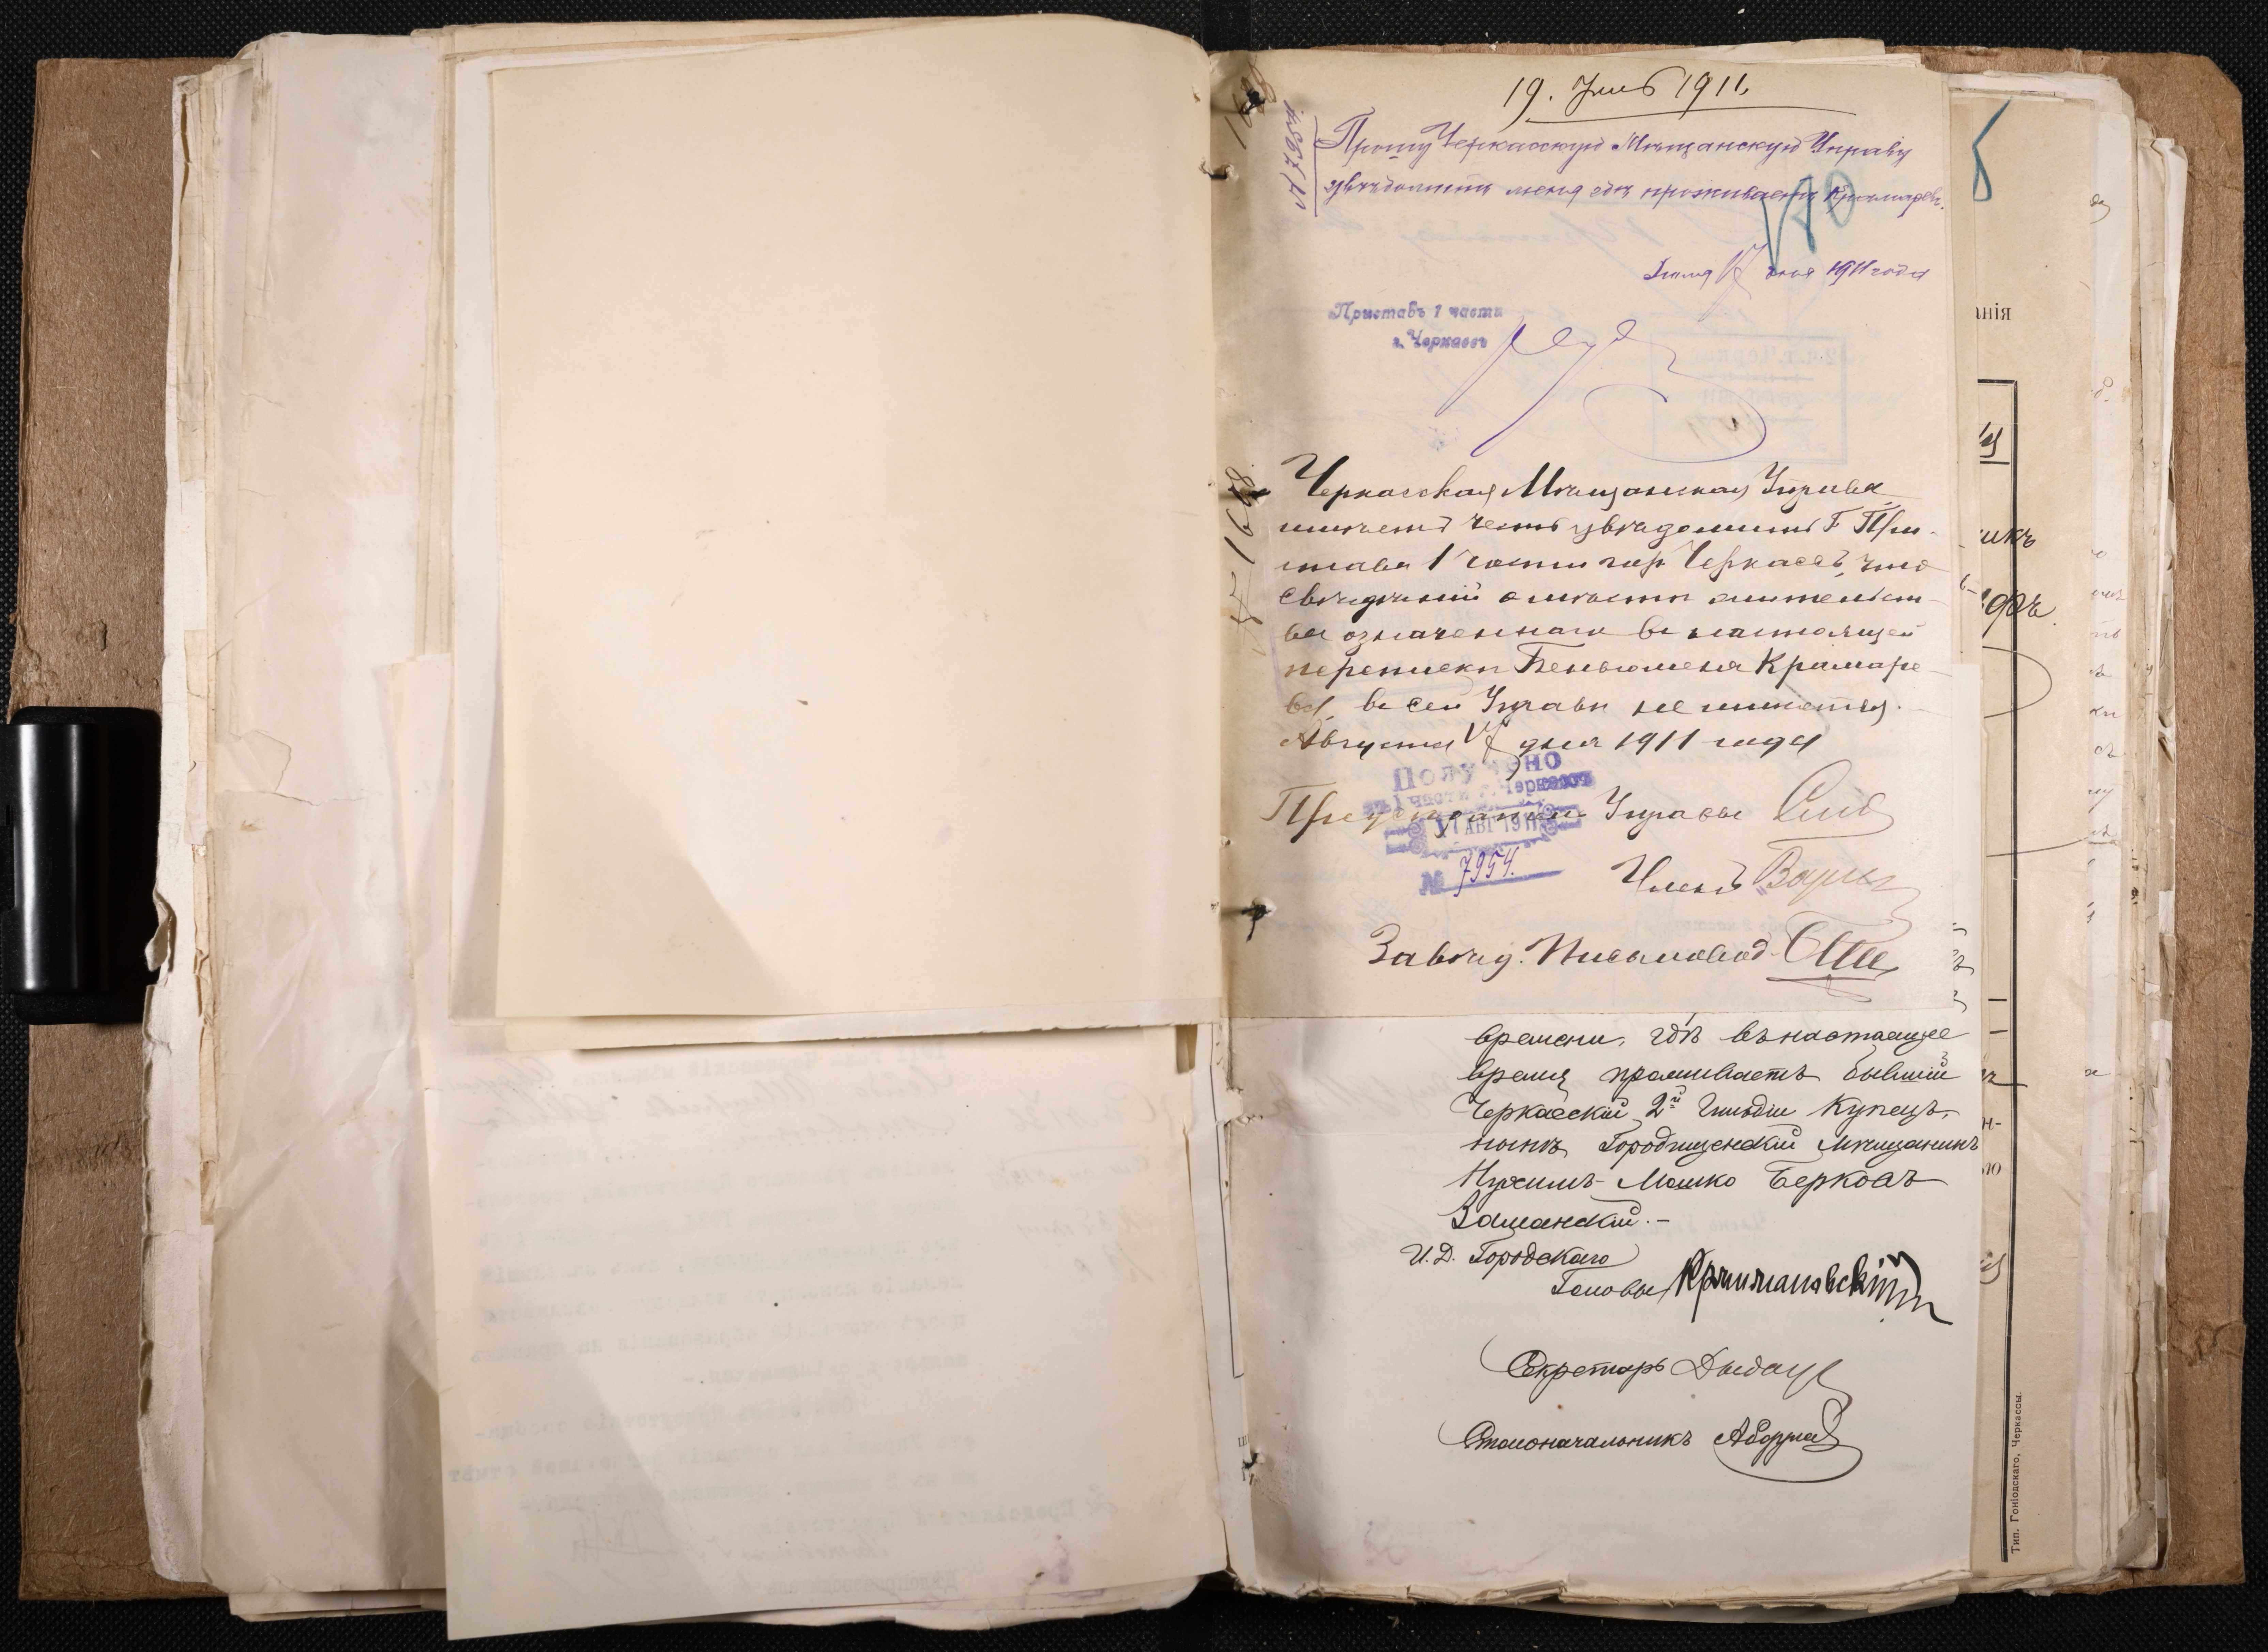 19. Июль 1911.
№ 7954.
Прошу Черкасскую Мѣщанскую Управу
увѣдомить меня гдѣ проживаетъ Крамаревъ.
Іюля 17 дня 1911 года
Приставъ 1 части
г. Черкассъ
Черкасская Мѣщанская Управа
имѣетъ честь увѣдомить Г. При-
става 1 части гор. Черкассъ, что
свѣдѣній о мѣстѣ жительст-
ва означеннаго въ настоящей
перепискѣ Беньюмена Крамаре-
ва, въ сей Управѣ не имѣется.
Августа 17 дня 1911 года
№ 1668
Получено
1 части г. Черкассъ
АВГ 1911
№ 7954.
Управы
Членъ
Завѣд. Письмовод.
времени, гдѣ въ настоящее
время проживаетъ бывшій
Черкасскій 2й Гильдіи Купецъ,
нынѣ Городищенскій Мѣщанинъ
Нухимъ-Мошко Берковъ
Замanскій.-
И.Д. Городского
Головы
Секретарь
Столоначальникъ
нія
икъ
Тип. Гоніодскаго, Черкассы.